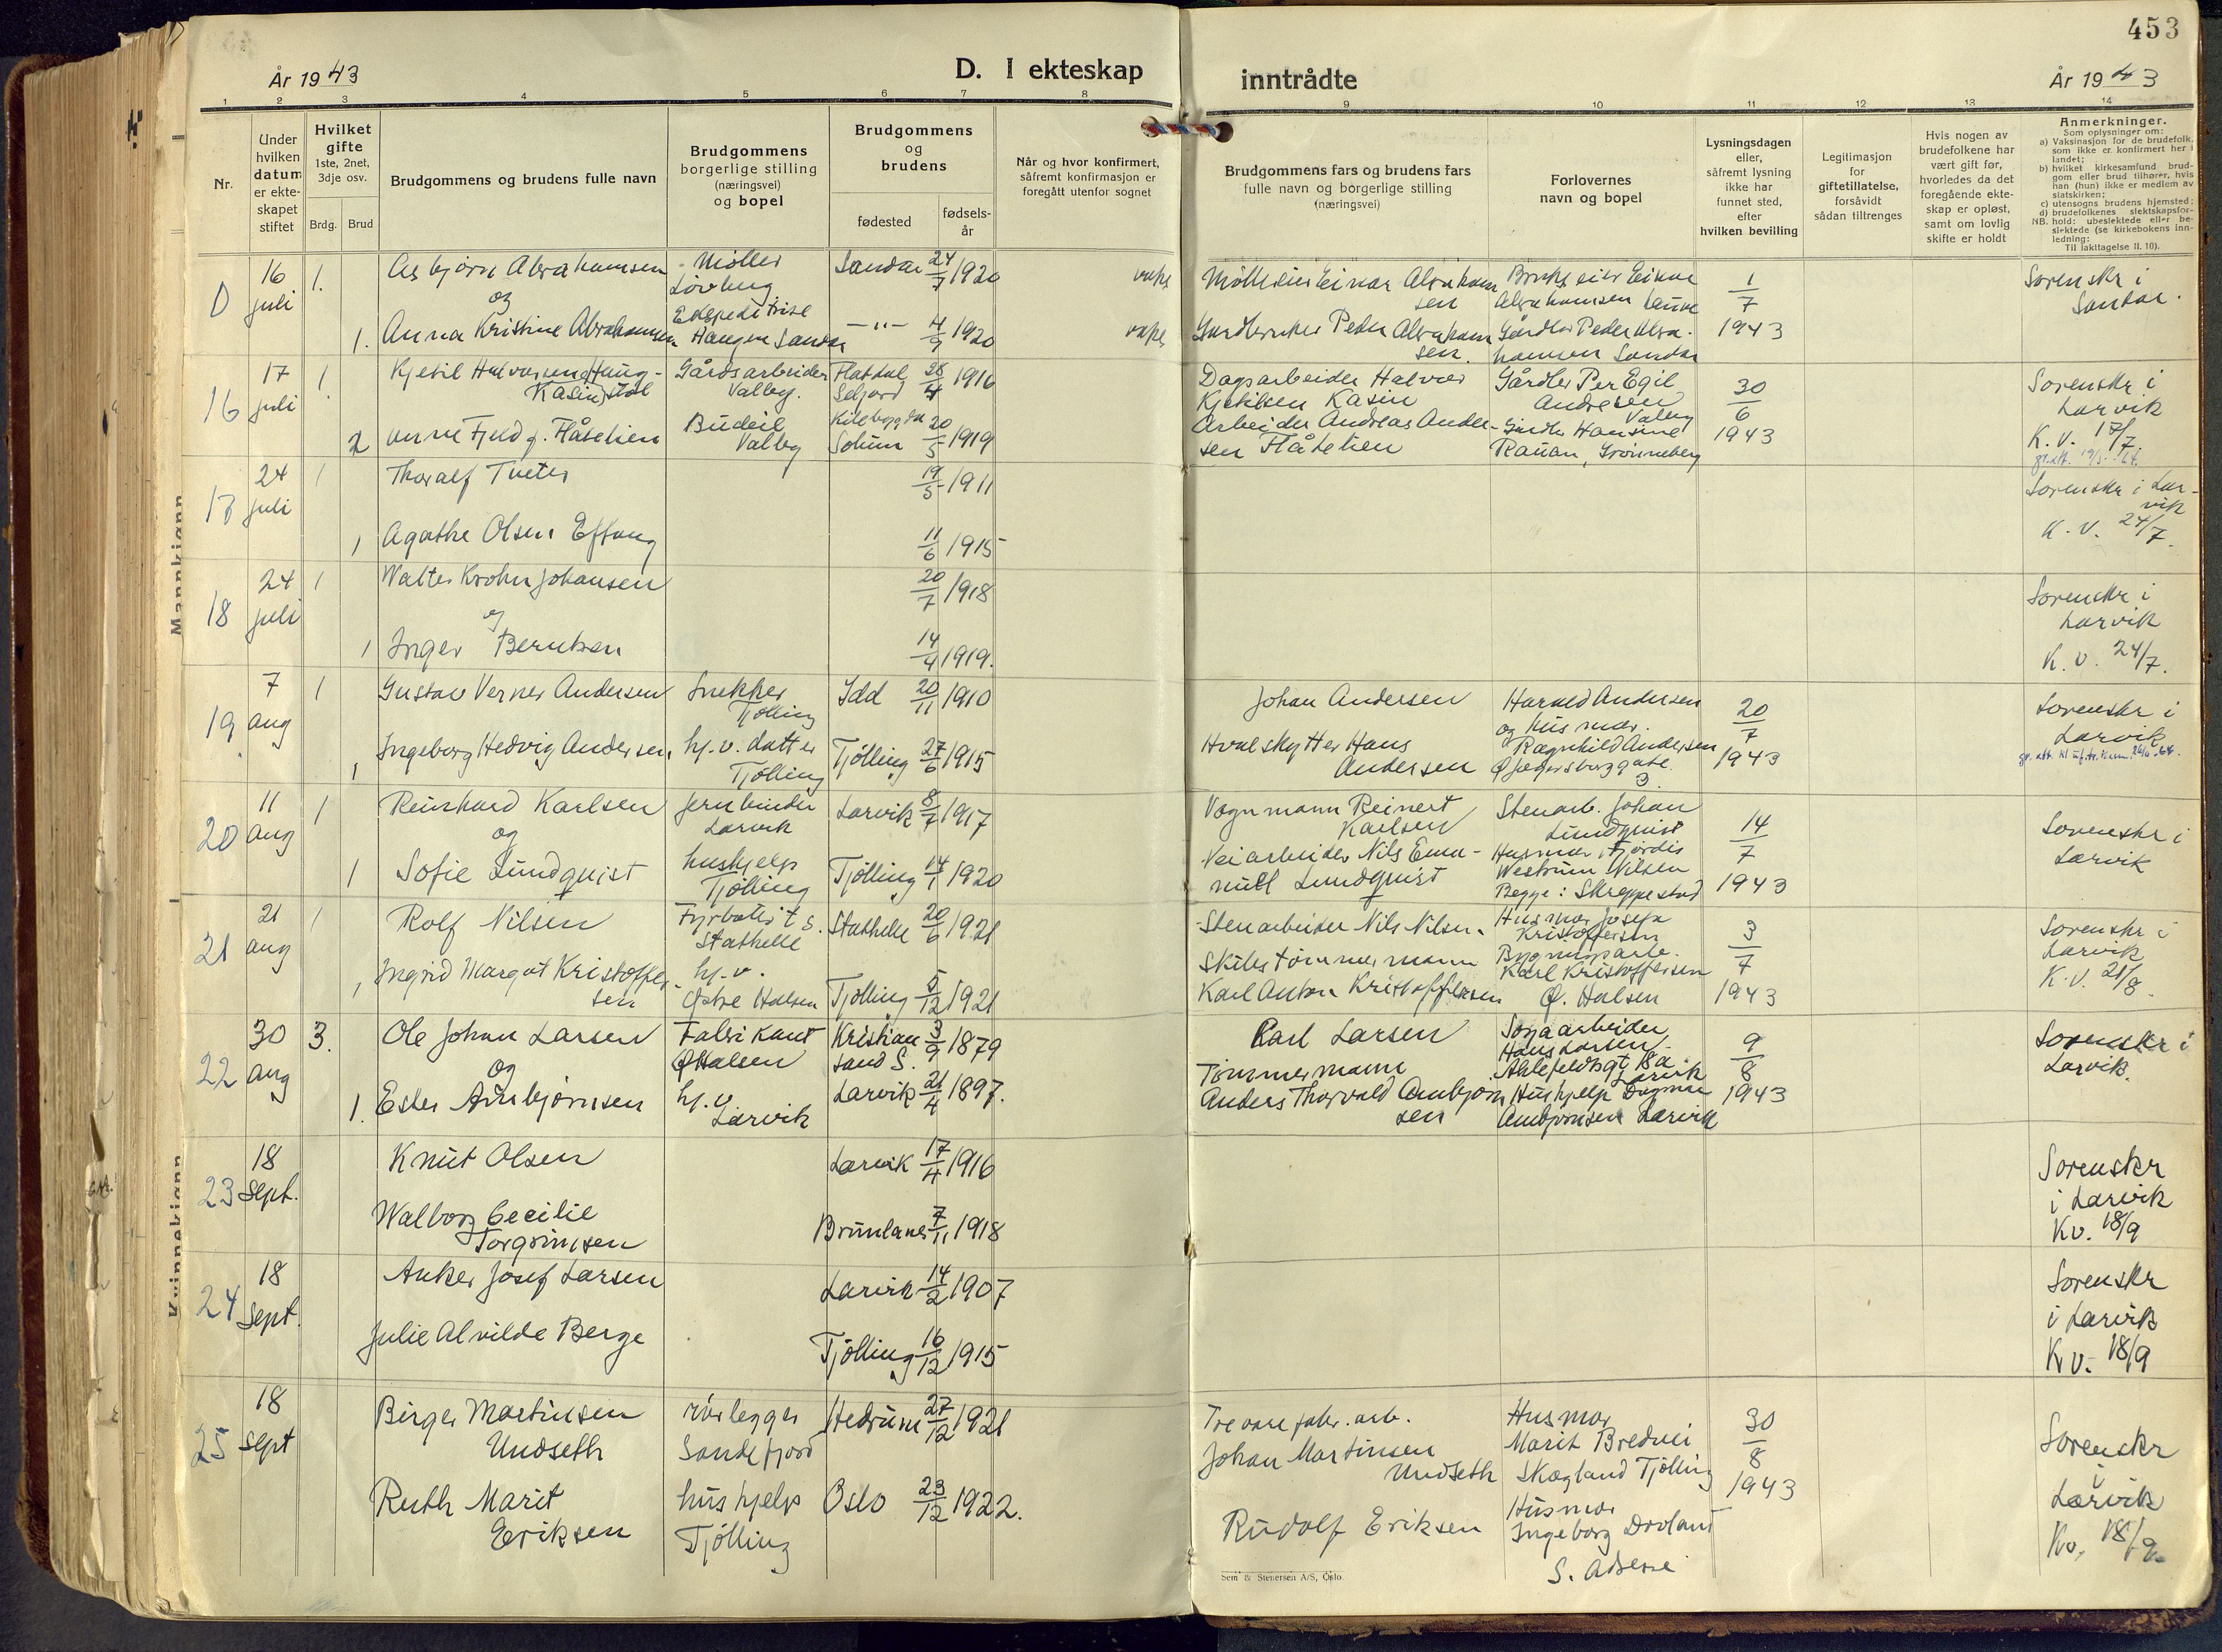 453
År 1943
D. I ekteskap
inntrådte
År 1943
1 2 3 4 5 6 7 8 9 10 11 12 13 14
Nr.
Under
hvilken
datum
er ekte-
skapet
stiftet
Hvilket
gifte
1ste, 2net,
3dje osv.
Brdg. Brud
Brudgommens og brudens fulle navn
Brudgommens
borgerlige stilling
(næringsvei)
og bopel
Brudgommens
og
brudens
fødested
fødsels-
år
Når og hvor konfirmert,
såfremt konfirmasjon er
foregått utenfor sognet
Brudgommens fars og brudens fars
fulle navn og borgerlige stilling
(næringsvei)
Forlovernes
navn og bopel
Lysningsdagen
eller,
såfremt lysning
ikke har
funnet sted,
efter
hvilken bevilling
Legitimasjon
for
giftetillatelse,
forsåvidt
sådan tiltrenges
Hvis nogen av
brudefolkene har
vært gift før,
hvorledes da det
foregående ekte-
skap er opløst,
samt om lovlig
skifte er holdt
Anmerkninger.
Som oplysninger om:
a) Vaksinasjon for de brudefolk,
som ikke er konfirmert her i
landet;
b) hvilket kirkesamfund brud-
gom eller brud tilhører, hvis
han (hun) ikke er medlem av
statskirken;
c) utensogns brudens hjemsted;
d) brudefolkenes slektskapsfor-
NB. hold: ubeslektede eller be-
slektede (se kirkebokens inn-
ledning:
Til iakttagelse II. 10).
Mannkjønn
Kvinnekjønn
0 16 juli 1. Asbjørn Abrahamsen Møller Løvberg Sandar 24/7 1920
og
1. Anna Kristine Abrahamsen Ekspeditrise Haugen Sandar —"— 4/9 1920
Mølleeier Einar Abrahamsen
Einar Abrahamsen
1/7 1943
Sorenskr i
Sandar.
Gårdbruker Peder Abrahamsen.
Gårdbr Peder Abrahamsen Sandar
16 17 juli 1 Kjetil Halvorsen Haug-
Kasin Gårdsarbeider Valby. Flatdal Seljord 28/4 1916
2 Fjeld g. Flåtelien Budeie Valby Solum 20/5 1919
Dagsarbeider Halvor
Kjetilsen Kasin
Gårdbr Per Egil
Andresen
Valby
30/6 1943
Sorenskr i
Larvik
K. V. 17/7.
Arbeider Andreas Ander-
sen Flåtelien
Gårdbr Hansine
Rauan, Grønneberg
17 24 juli 1 Thoralf Tveter 19/5 1911
1 Agathe Olsen Eftang 11/6 1915
Sorenskr i Lar-
vik
K. V. 24/7.
18 24 juli 1 Walter Krohn Johansen 20/7 1918
og
1 Inger Berntsen 14/9 1919.
Sorenskr i
Larvik
K. V. 24/7.
19 7 aug 1 Gustav Verner Andersen Snekker Tjølling Idd 20/11 1910
1 Ingeborg Hedvig Andersen hj.v. datter Tjølling Tjølling 27/6 1915
Johan Andersen
Harald Andersen
og husmor.
Ragnhild Andersen
20/7 1943
Sorenskr i
Larvik
Hvalskytter Hans
Andersen
20 11 aug 1 Reinhard Karlsen Jernbinder Larvik Larvik 8/7 1917
og
1 Sofie Lundquist hushjelp Tjølling Tjølling 14/1 1920
Vognmann Reinert
Karlsen
Stenarb. Johan
Lundquist
14/7 1943
Sorenskr i
Larvik
Veiarbeider Nils Ema-
nuel Lundquist
Husmor Hjørdis
Westrum Nilsen
Begge: Skreppestad
21 21 aug 1 Rolf Nilsen Fyrbøter t. s. Stathelle Stathelle 20/6 1921
1 Ingrid Margot Kristoffer-
sen hj.v. Østre Halsen Tjølling 5/12 1921
Stenarbeider Nils Nilsen
Husmor Josefa
Kristoffersen
3/7 1943
Sorenskr i
Larvik
K. V. 21/8.
Skibstømmermann
Karl Anton Kristoffersen
Bygningsarb.
Karl Kristoffersen
Ø. Halsen
22 30 aug 3. Ole Johan Larsen Fabrikant Ø Halsen Kristian
sand S. 3/9 1879
og
1. Ester Ambjørnsen hj.v. Larvik Larvik 21/4 1897.
Karl Larsen
Hans Larsen
Ahlefeldtsgt 18a
Larvik
9/8 1943
Sorenskr i
Larvik.
Tømmermann
Anders Thorvald Ambjørn
sen
Hushjelp Dagmar
Ambjørnsen Larvik
23 18 sept. Knut Olsen Larvik 17/4 1916
Walborg Cecilie
Torgrimsen Brunlanes 7/11 1918
Sorenskr
i Larvik
Kv. 18/9
24 18 Sept. Anker Josef Larsen Larvik 14/2 1907
Julie Alvilde Berge Tjølling 16/12 1915
Sorenskr
i Larvik
Kv. 18/9
25 18 sept Birger Martinsen
Undseth rørlegger Sandefjord Hedrum 27/12 1921
Ruth Marit
Eriksen hushjelp Tjølling Oslo 23/12 1922.
Trevarefabr. arb.
Johan Martinsen
Undseth
Husmor
Marit Bredvei
Skogland Tjølling
30/8 1943
Sorenskr
i
Larvik
Kv. 18/9.
Rudolf Eriksen
Husmor
Ingeborg
S. adresse
Sem & Stenersen A/S, Oslo.